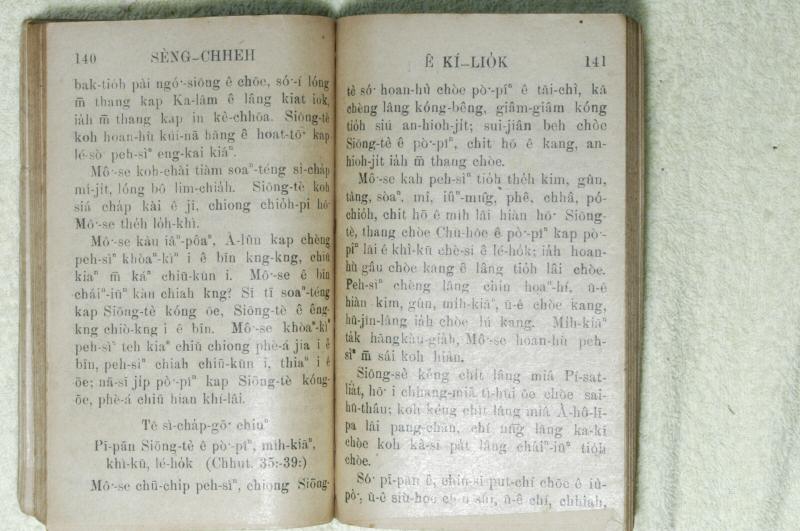 140 SÈNG-CHHEH
bak-tio̍h pài ngó͘-siōng ê chōe, só͘-í lóng
m̄ thang kap Ka-lâm ê lâng kiat iok,
ia̍h m̄ thang kap in kè-chhōa. Siōng-tè
koh hoan-hù kúi-nā hāng ê hoat-tō͘ kap
lé-sò͘ peh-sìⁿ eng-kai kiâⁿ.
Mô͘-se koh-chài tiàm soaⁿ-téng sì-cha̍p
mî-ji̍t, lóng bô lim-chia̍h. Siōng-tè koh
siá cha̍p kài ê jī, chiong chio̍h-pi hō͘
Mô͘-se the̍h lo̍h-khì.
Mô͘-se kàu iâⁿ-pôaⁿ, À-lûn kap chèng
peh-sìⁿ khòaⁿ-kìⁿ i ê bīn kng-kng, chiū
kiaⁿ m̄ káⁿ chiū-kūn i. Mô͘-se ê bīn
cháiⁿ-iūⁿ kàu chiah kng? Sī tī soaⁿ-téng
kap Siōng-tè kóng ōe, Siōng-tè ê êng-
kng chiò-kng i ê bīn. Mô͘-se khòaⁿ-kìⁿ
peh-sìⁿ teh kiaⁿ chiū chiong phè-á jia i ê
bīn, peh-sìⁿ chiah chiū-kūn i, thiaⁿ i ê
ōe; nā-sī ji̍p pò͘-pîⁿ kap Siōng-tè kóng-
ōe, phè-á chiū hian khí-lâi.
Tē sì-cha̍p-gō͘ chiuⁿ
Pī-pān Siōng-tè ê pò͘-pîⁿ, mi̍h-kiāⁿ,
khì-kū, lé-ho̍k (Chhut. 35:-39:)
Mô͘-se chū-chi̍p peh-sìⁿ, chiong Siōng-
Ê KÍ-LIO̍K 141
tè só͘ hoan-hù chòe pò͘-pîⁿ ê tāi-chì, kā
chèng lâng kóng-bêng, giâm-giâm kóng
tio̍h siú an-hioh-ji̍t; sui-jiân beh chòe
Siōng-tè ê pò͘-pîⁿ, chit hō ê kang, an-
hioh-ji̍t ia̍h m̄ thang chòe.
Mô͘-se kah peh-sìⁿ tio̍h the̍h kim, gûn,
tâng, sòaⁿ, mî, iûⁿ-mn̂g, phê, chhâ, pó-
chio̍h, chit hō ê mi̍h lâi hiàn hō͘ Siōng-
tè, thang chòe Chú-hōe ê pò͘-pîⁿ kap pò͘-
pîⁿ lāi ê khì-kū chè-si ê lé-ho̍k; ia̍h hoan-
hù gâu chòe kang ê lâng tio̍h lâi chòe.
Peh-sìⁿ chèng lâng chin hoaⁿ-hí, ū-ê
hiàn kim, gûn, mi̍h-kiāⁿ, ū-ê chòe kang,
hū-jîn-lâng ia̍h chòe lú kang. Mi̍h-kiāⁿ
ta̍k hāng kàu-gia̍h, Mô͘-se hoan-hù peh-
sìⁿ m̄ sái koh hiàn.
Siōng-sè kéng chi̍t lâng miâ Pí-sat-
lia̍t, hō͘ i chhang-miâ tì-hūi ōe chòe sai-
hū-thâu; koh kéng chi̍t lâng miâ À-hô-lī-
pa lâi pang-chān, chí nn̄g lâng ka-kī
chòe koh kà-sī pa̍t lâng cháiⁿ-iūⁿ tio̍h
chòe.
Só͘ pī-pān ê, chiū-sī put-chí chōe ê iù-
pò͘, ū-ê siù-hoe ū-ê chí, chhiah,